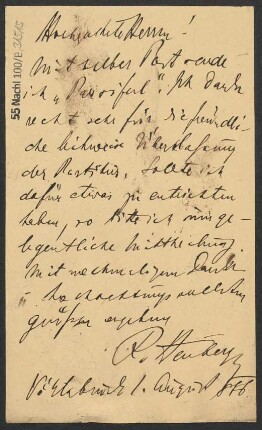 55 Nachl 100/B
Hochgeachtete Herren!
Mit selber Post sende
ich „Parsifal". Ich danke
recht sehr für die freundli-
che leihweise Überlassung
der Partitur. Sollte ich
dafür etwas zu entrichten
haben, so bitte ich um ge-
legentliche Mittheilung.
Mit nochmaligem Danke
hochachtungsvollsten
Grüßen ergebenst
Vöcklabruck 1. August